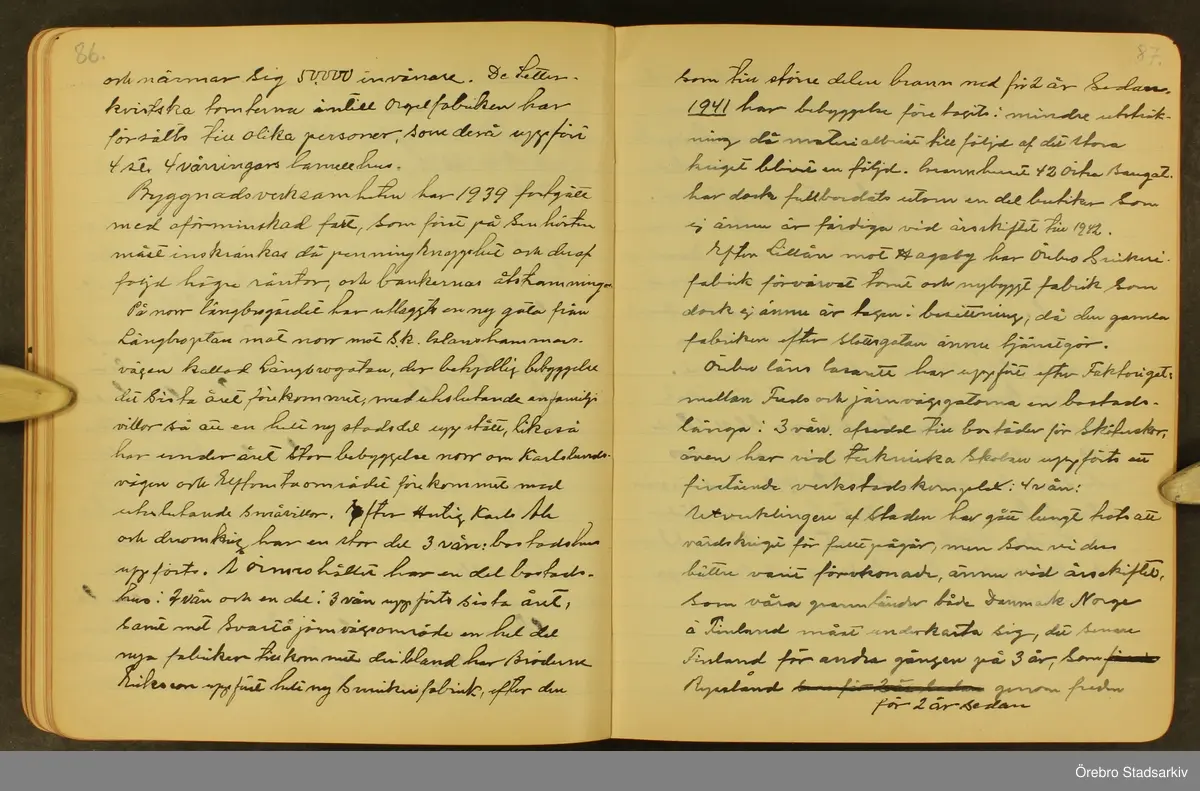 86.
och närmar sig 50.000 invånare. De Zetter-
kvistska tomterna intill Orgelfabriken har
försålts till olika personer, som derå uppfört
4 st. 4 våningars lamellhus.
Byggnadsverksamheten har 1939 fortgått
med oförminskad fart, som först på sen hösten
måst inskränkas då penningknapphet och deraf
följd högre räntor, och bankernas åtstramning
På norr långbrogärdet har utlaggts en ny gata från
Långbroplan mot norr mot s.k. Glanshammars-
vägen kallad Långbrogatan, der betydlig bebyggelse
det sista året förekommit, med uteslutande enfamilj
villor så att en helt ny stadsdel uppstått, likaså
har under året stor bebyggelse norr om Karlslunds-
vägen och området förekommit med
uteslutande småvillor. Efter Hertig Karls Allé
och deromkring har en stor del 3 vån: bostadshus
uppförts. Å Örnsrohållet har en del bostads-
hus i 2 vån och en del i 3 vån uppförts sista året,
samt mot Svartå järnvägsområde en hel del
nya fabriker tillkommit deribland har Bröderne
Eriksson uppfört helt ny Snickerifabrik, efter den
87.
som till större delen brann ned för 2 år Sedan.
1941 har bebyggelse företagits i mindre utsträck-
ning då materialbrist till följd af det stora
kriget blivit en följd. Kvarnhuset 42 Östra Bangat.
har dock fullbordats utom en del butiker som
ej ännu är färdiga vid årsskiftet till 1942.
Efter Lillån mot Hagaby har Örebro Snickeri-
fabrik förvärvat tomt och nybyggt fabrik som
dock ej ännu är tagen i besittning, då den gamla
fabriken efter Slottsgatan ännu tjänstgör.
Örebro läns lasarett har uppfört efter Faktorigat:
mellan Freds och järnvägsgatorna en bostads-
länga i 3 vån. afsedd till bostäder för Sköterskor,
även har vid Tekniska Skolan uppförts ett
fristående verkstadskomplex i 4 vån:
Utvecklingen af Staden har gått lungt trots att
världskriget för fullt pågår, men som vi dess
bättre varit förskonade, ännu vid årsskiftet,
som våra grannländer både Danmark Norge
å Finland måst underkasta sig, det senare
Finland för andra gången på 3 år, som
Ryssland genom freden
för 2 år sedan
Örebro Stadsarkiv